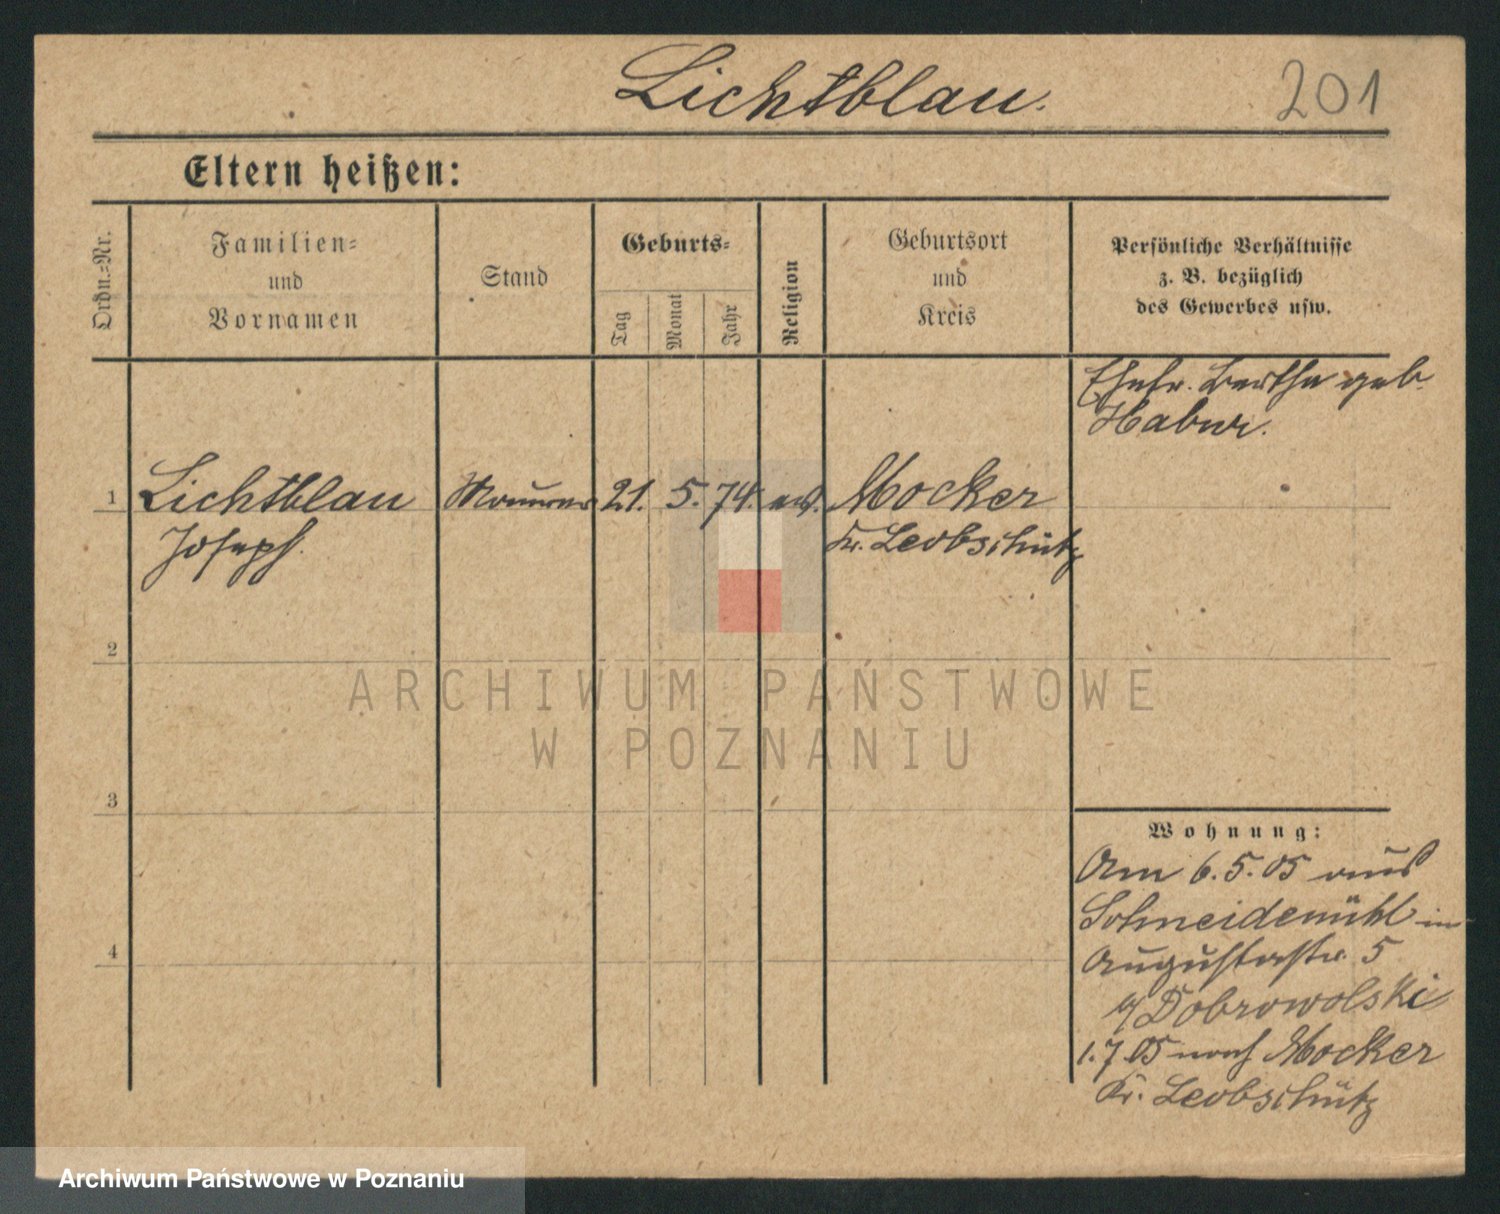 Lichtblau.
201
Eltern heißen:
Ordn.-Nr.
Familien-
und
Vornamen
Stand
Geburts-
Tag
Monat
Jahr
Religion
Geburtsort
und
Kreis
Persönliche Verhältnisse
z. B. bezüglich
des Gewerbes usw.
Ehefr. Bertha geb.
1
Lichtblau
Joseph.
Maurer
21.
5.
74.
Mocker
Kr. Leobschütz
2
3
4
Wohnung:
Am 6.5.05 aus
Schneidemühl in
Augustastr. 5
Dobrowolski
1.7.05 nach Mocker
Kr. Leobschütz
ARCHIWUM PAŃSTWOWE
W POZNANIU
Archiwum Państwowe w Poznaniu